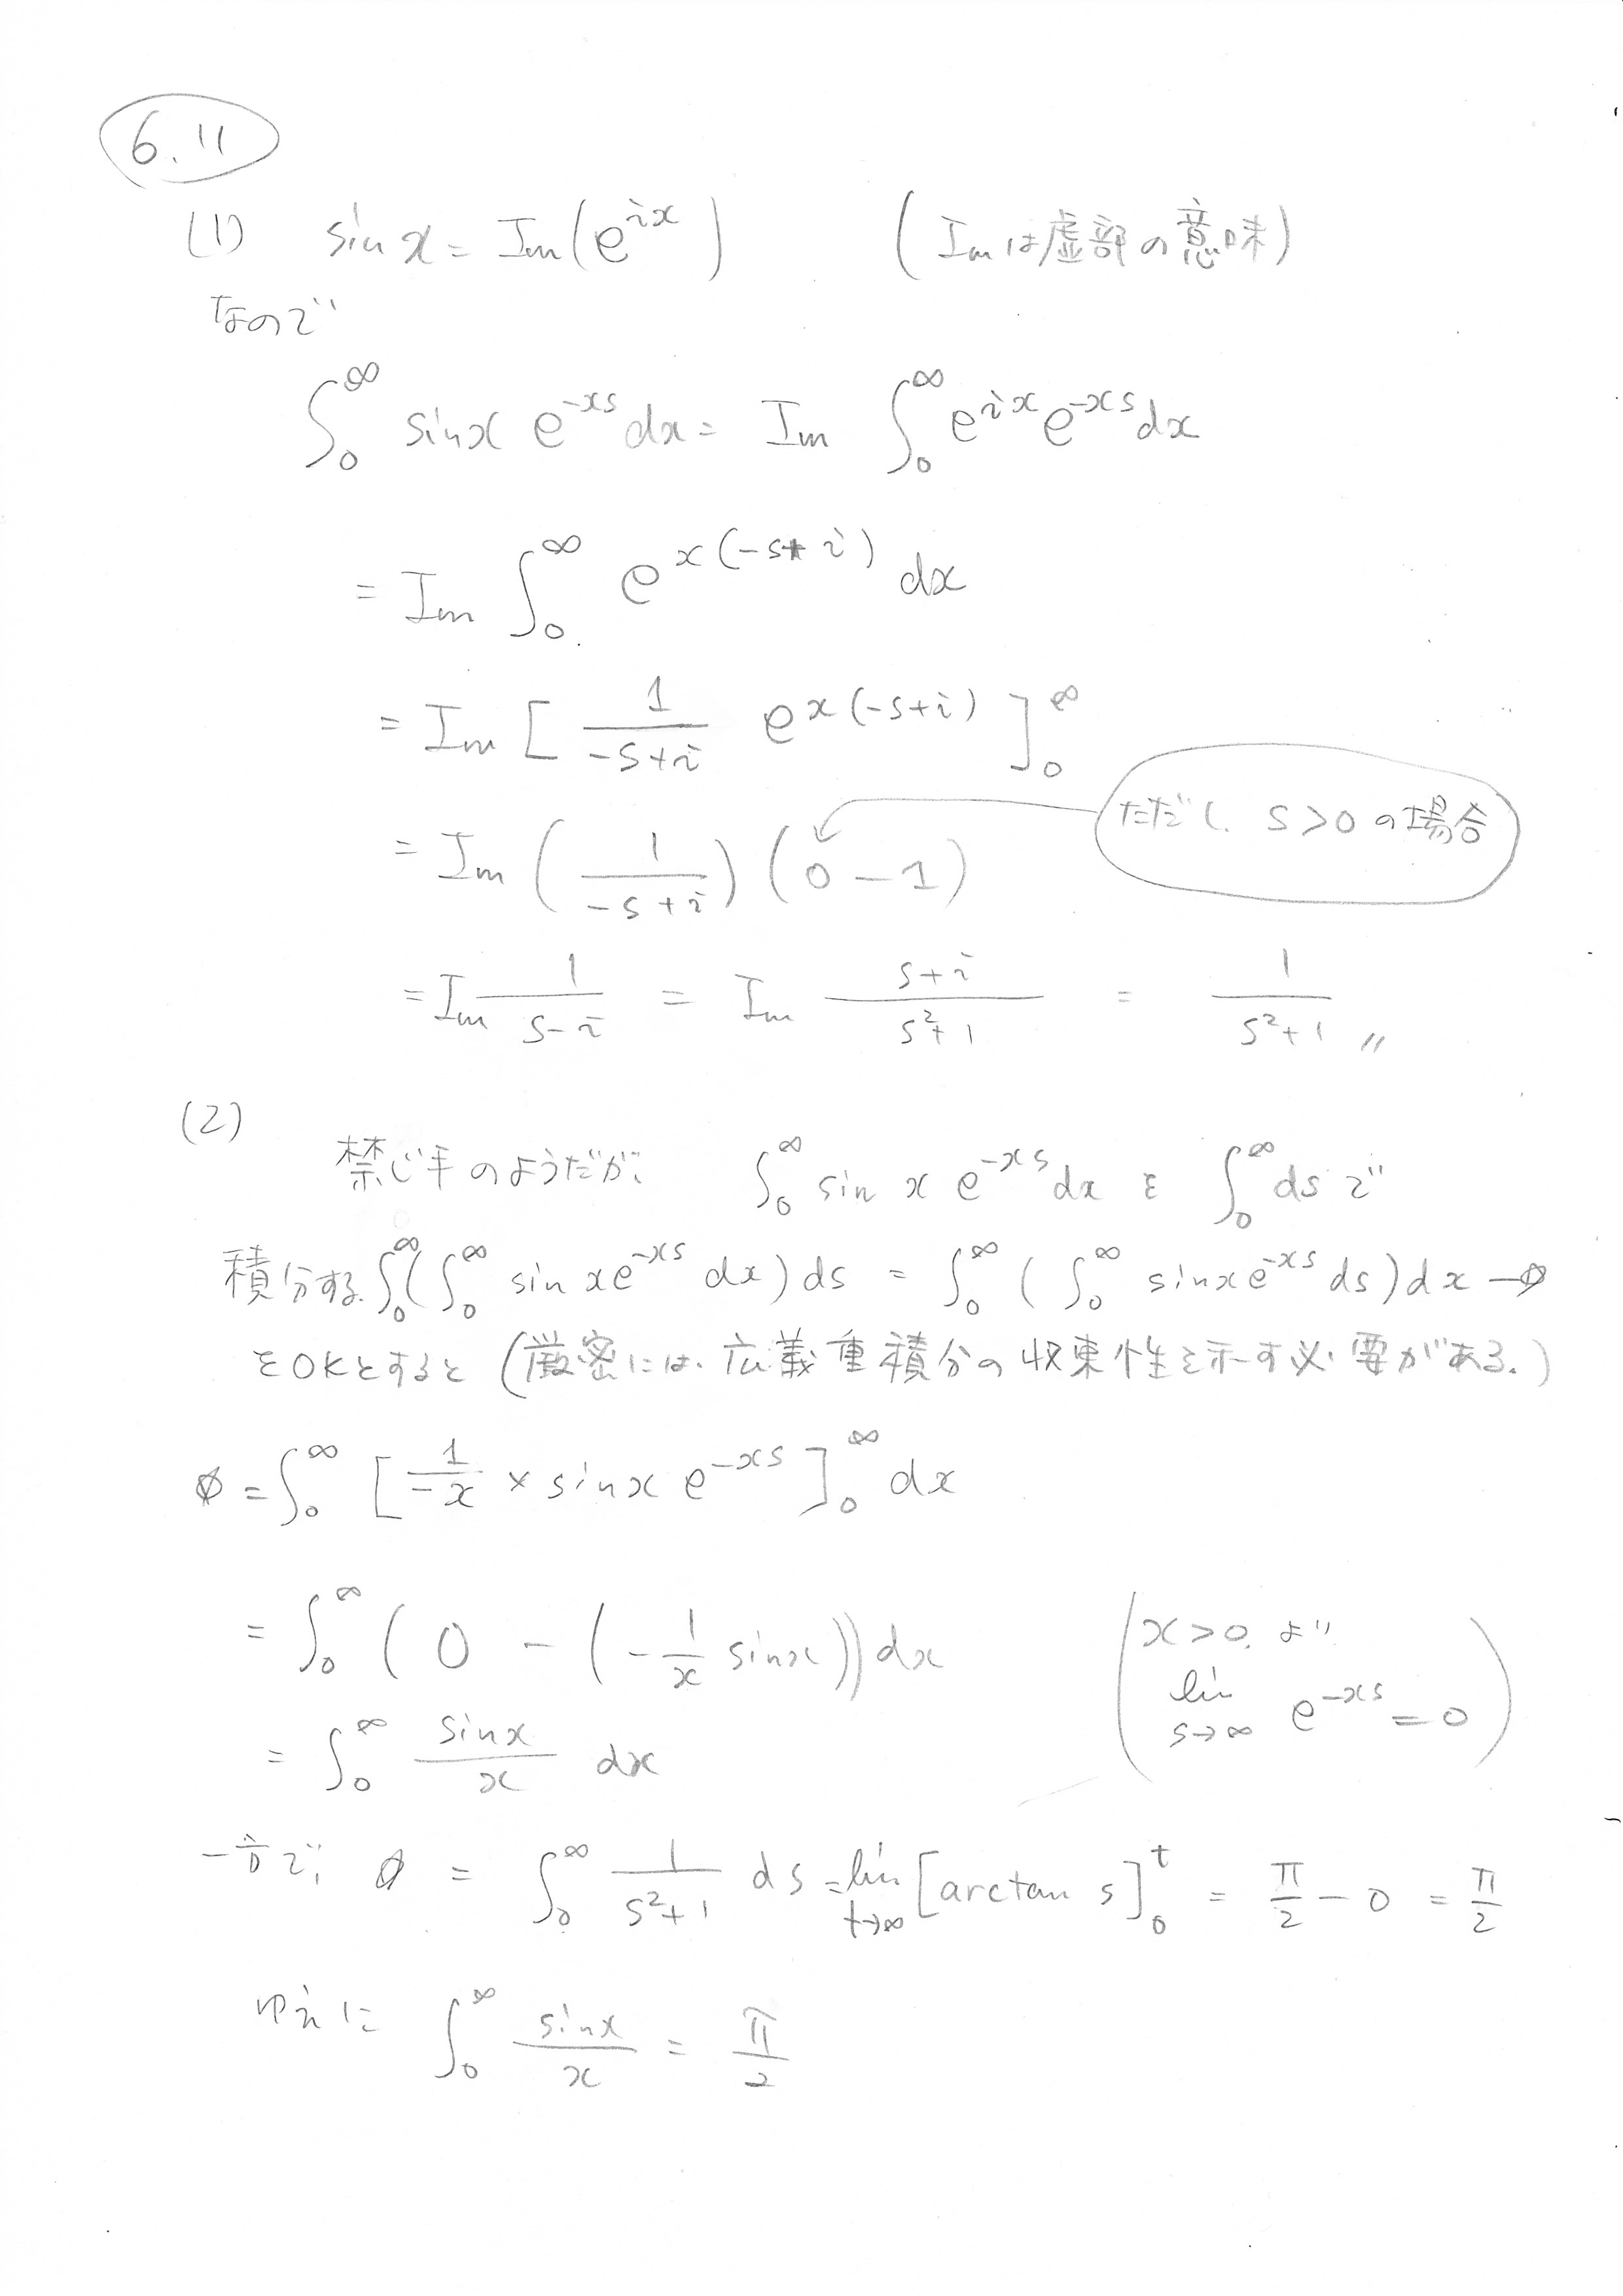 6.11
(1) sin x = Im(e^{ix}) (Imは虚部の意味)
なので
∫_0^∞ sin x e^{-xs} dx = Im ∫_0^∞ e^{ix} e^{-xs} dx
= Im ∫_0^∞ e^{x(-s+i)} dx
= Im [ 1/(-s+i) e^{x(-s+i)} ]_0^∞
ただし、s>0の場合
= Im (1/(-s+i)) (0-1)
= Im 1/(s-i) = Im (s+i)/(s^2+1) = 1/(s^2+1) 〃
(2)
禁じ手のようだが、 ∫_0^∞ sin x e^{-xs} dx を ∫_0^∞ ds で
積分する. ∫_0^∞ (∫_0^∞ sin x e^{-xs} dx) ds = ∫_0^∞ (∫_0^∞ sin x e^{-xs} ds) dx —∅
をOKとすると (厳密には、広義重積分の収束性を示す必要がある.)
∅ = ∫_0^∞ [ 1/(-x) × sin x e^{-xs} ]_0^∞ dx
= ∫_0^∞ (0 - (-1/x sin x)) dx (x>0. より
lim_{s→∞} e^{-xs} = 0)
= ∫_0^∞ sin x / x dx
一方で, ∅ = ∫_0^∞ 1/(s^2+1) ds = lim_{t→∞} [arctan s]_0^t = π/2 - 0 = π/2
ゆえに ∫_0^∞ sin x / x = π/2